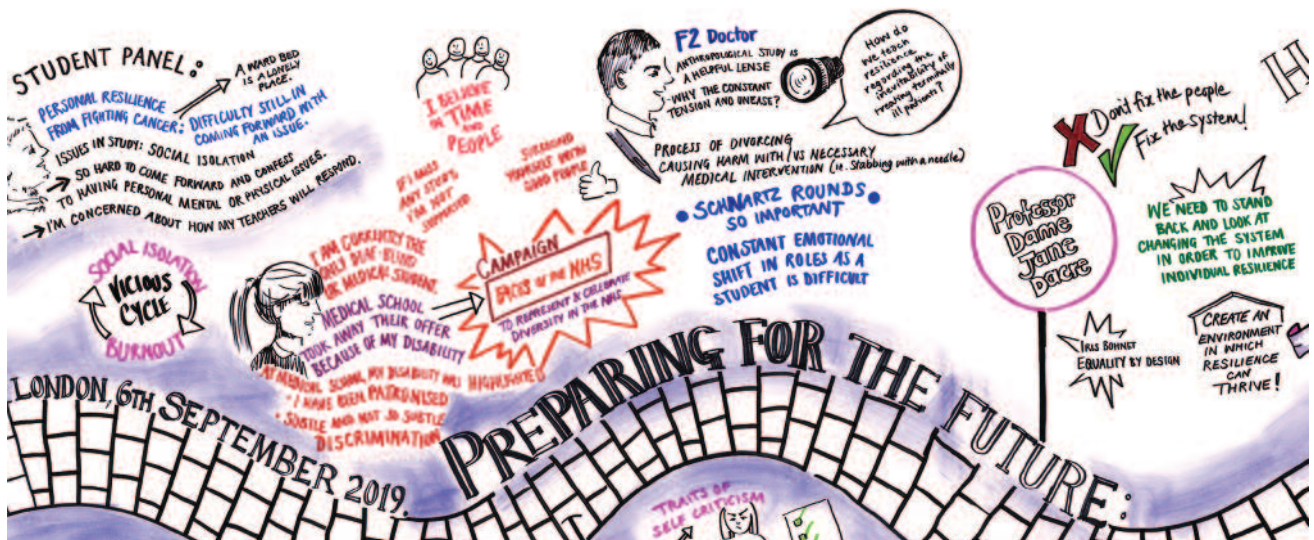 STUDENT PANEL:
PERSONAL RESILIENCE
FROM FIGHTING CANCER:
A WARD BED
IS A LONELY
PLACE.
DIFFICULTY STILL IN
COMING FORWARD WITH
AN ISSUE.
ISSUES IN STUDY: SOCIAL ISOLATION
SO HARD TO COME FORWARD AND CONFESS
TO HAVING PERSONAL MENTAL OR PHYSICAL ISSUES.
I'M CONCERNED ABOUT HOW MY TEACHERS WILL RESPOND.
SOCIAL ISOLATION
VICIOUS
CYCLE
BURNOUT
I BELIEVE
IN TIME
AND
PEOPLE
IF I MISS
ANY STUDY,
I'M NOT
SUPPORTED
SURROUND
YOURSELF WITH
GOOD PEOPLE
I AM CURRENTLY THE
ONLY DEAF-BLIND
UK MEDICAL STUDENT.
MEDICAL SCHOOL
TOOK AWAY THEIR OFFER
BECAUSE OF MY DISABILITY
AT MEDICAL SCHOOL MY DISABILITY WAS HIGHLIGHTED
• I HAVE BEEN PATRONISED
• SUBTLE AND NOT SO SUBTLE
DISCRIMINATION
CAMPAIGN
FACES OF THE NHS
TO REPRESENT & CELEBRATE
DIVERSITY IN THE NHS
F2 Doctor
ANTHROPOLOGICAL STUDY IS
A HELPFUL LENSE
-WHY THE CONSTANT
TENSION AND UNEASE?
How do
we teach
resilience
regarding the
inevitability of
treating terminally
ill patients?
PROCESS OF DIVORCING
CAUSING HARM WITH/VS NECESSARY
MEDICAL INTERVENTION (ie. Stabbing with a needle)
• SCHWARTZ ROUNDS •
SO IMPORTANT
CONSTANT EMOTIONAL
SHIFT IN ROLES AS A
STUDENT IS DIFFICULT
Don't fix the people
Fix the system!
Professor
Dame
Jane
Dacre
WE NEED TO STAND
BACK AND LOOK AT
CHANGING THE SYSTEM
IN ORDER TO IMPROVE
INDIVIDUAL RESILIENCE
IRIS BOHNET
EQUALITY BY DESIGN
CREATE AN
ENVIRONMENT
IN WHICH
RESILIENCE
CAN
THRIVE!
LONDON, 6TH SEPTEMBER 2019.
PREPARING FOR THE FUTURE:
TRAITS OF
SELF CRITICISM